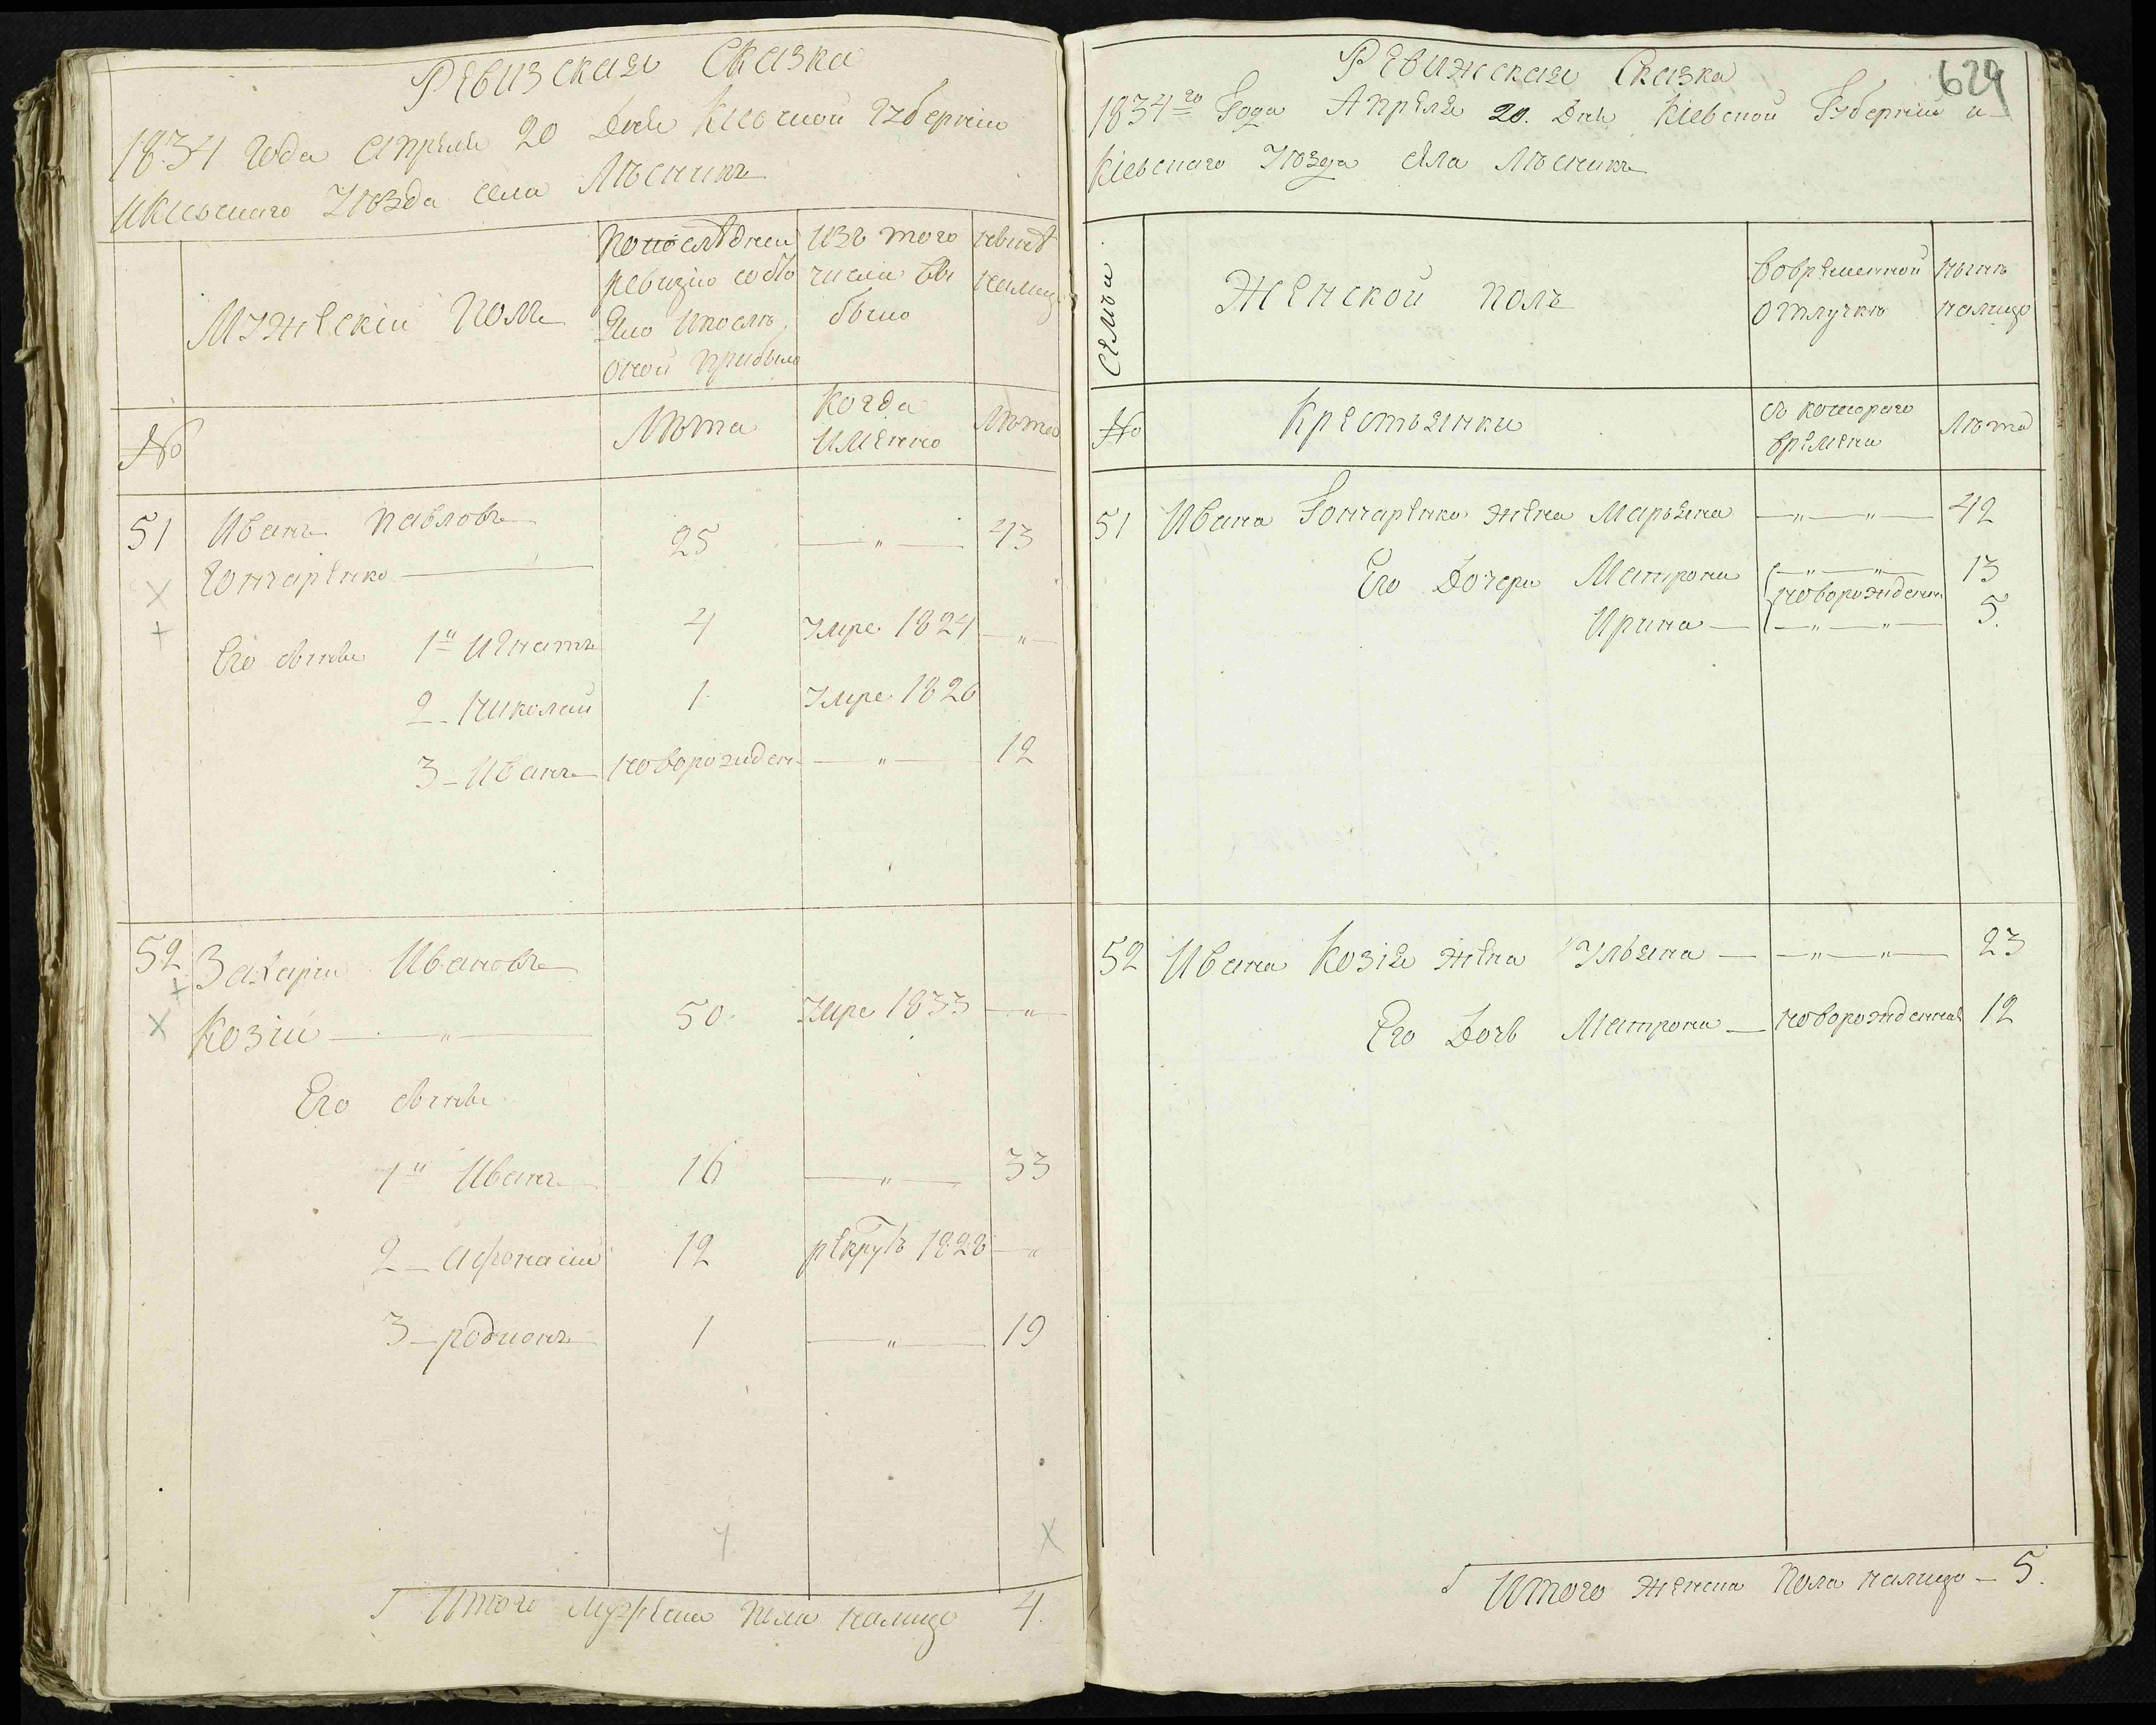 Ревизская Сказка
1834 года апреля 20 дня Киевской губернии
и Киевского уезда села Лѣсникъ
Мужескій полъ
по последней ревизіи состояло и после оной прибыло
изъ того числа выбыло
ныне налицо
№
Лѣта
Когда именно
Лѣта
51 Иванъ Павловъ
Гончаренко 25 — " — 43
Его сыновья 1й Игнатъ 4 Умре 1824 — " —
2 - Николай 1 Умре 1826
3 - Иванъ новорожден — " — 12
52 Захарій Ивановъ
Козій — " — 50 Умре 1833 — " —
Его сыновья
1й Иванъ 16 — " — 33
2 - Афонасій 12 рекрутъ 1828 — "
3 - родионъ 1 — " — 19
Итого мужеска пола налицо 4.
629
Ревижская Сказка
1834го Года Апреля 20. дня Кіевской Губерніи и
Кіевского Уѣзда села Лѣсникъ
Семьи
Женской полъ
во временной отлучкѣ
нынѣ налицо
№
Крестьянки
съ котораго времени
Лѣта
51 Ивана Гончаренко жена Марьяна — " — " — 42
Его Дочери Матрона — " — " — 13
новорожденн
Ирина — — " — " — 5.
52 Ивана Козія жена Ульяна — — " — " — 23
Его Дочь Матрона — новорожденная 12
Итого женска пола налицо — 5.